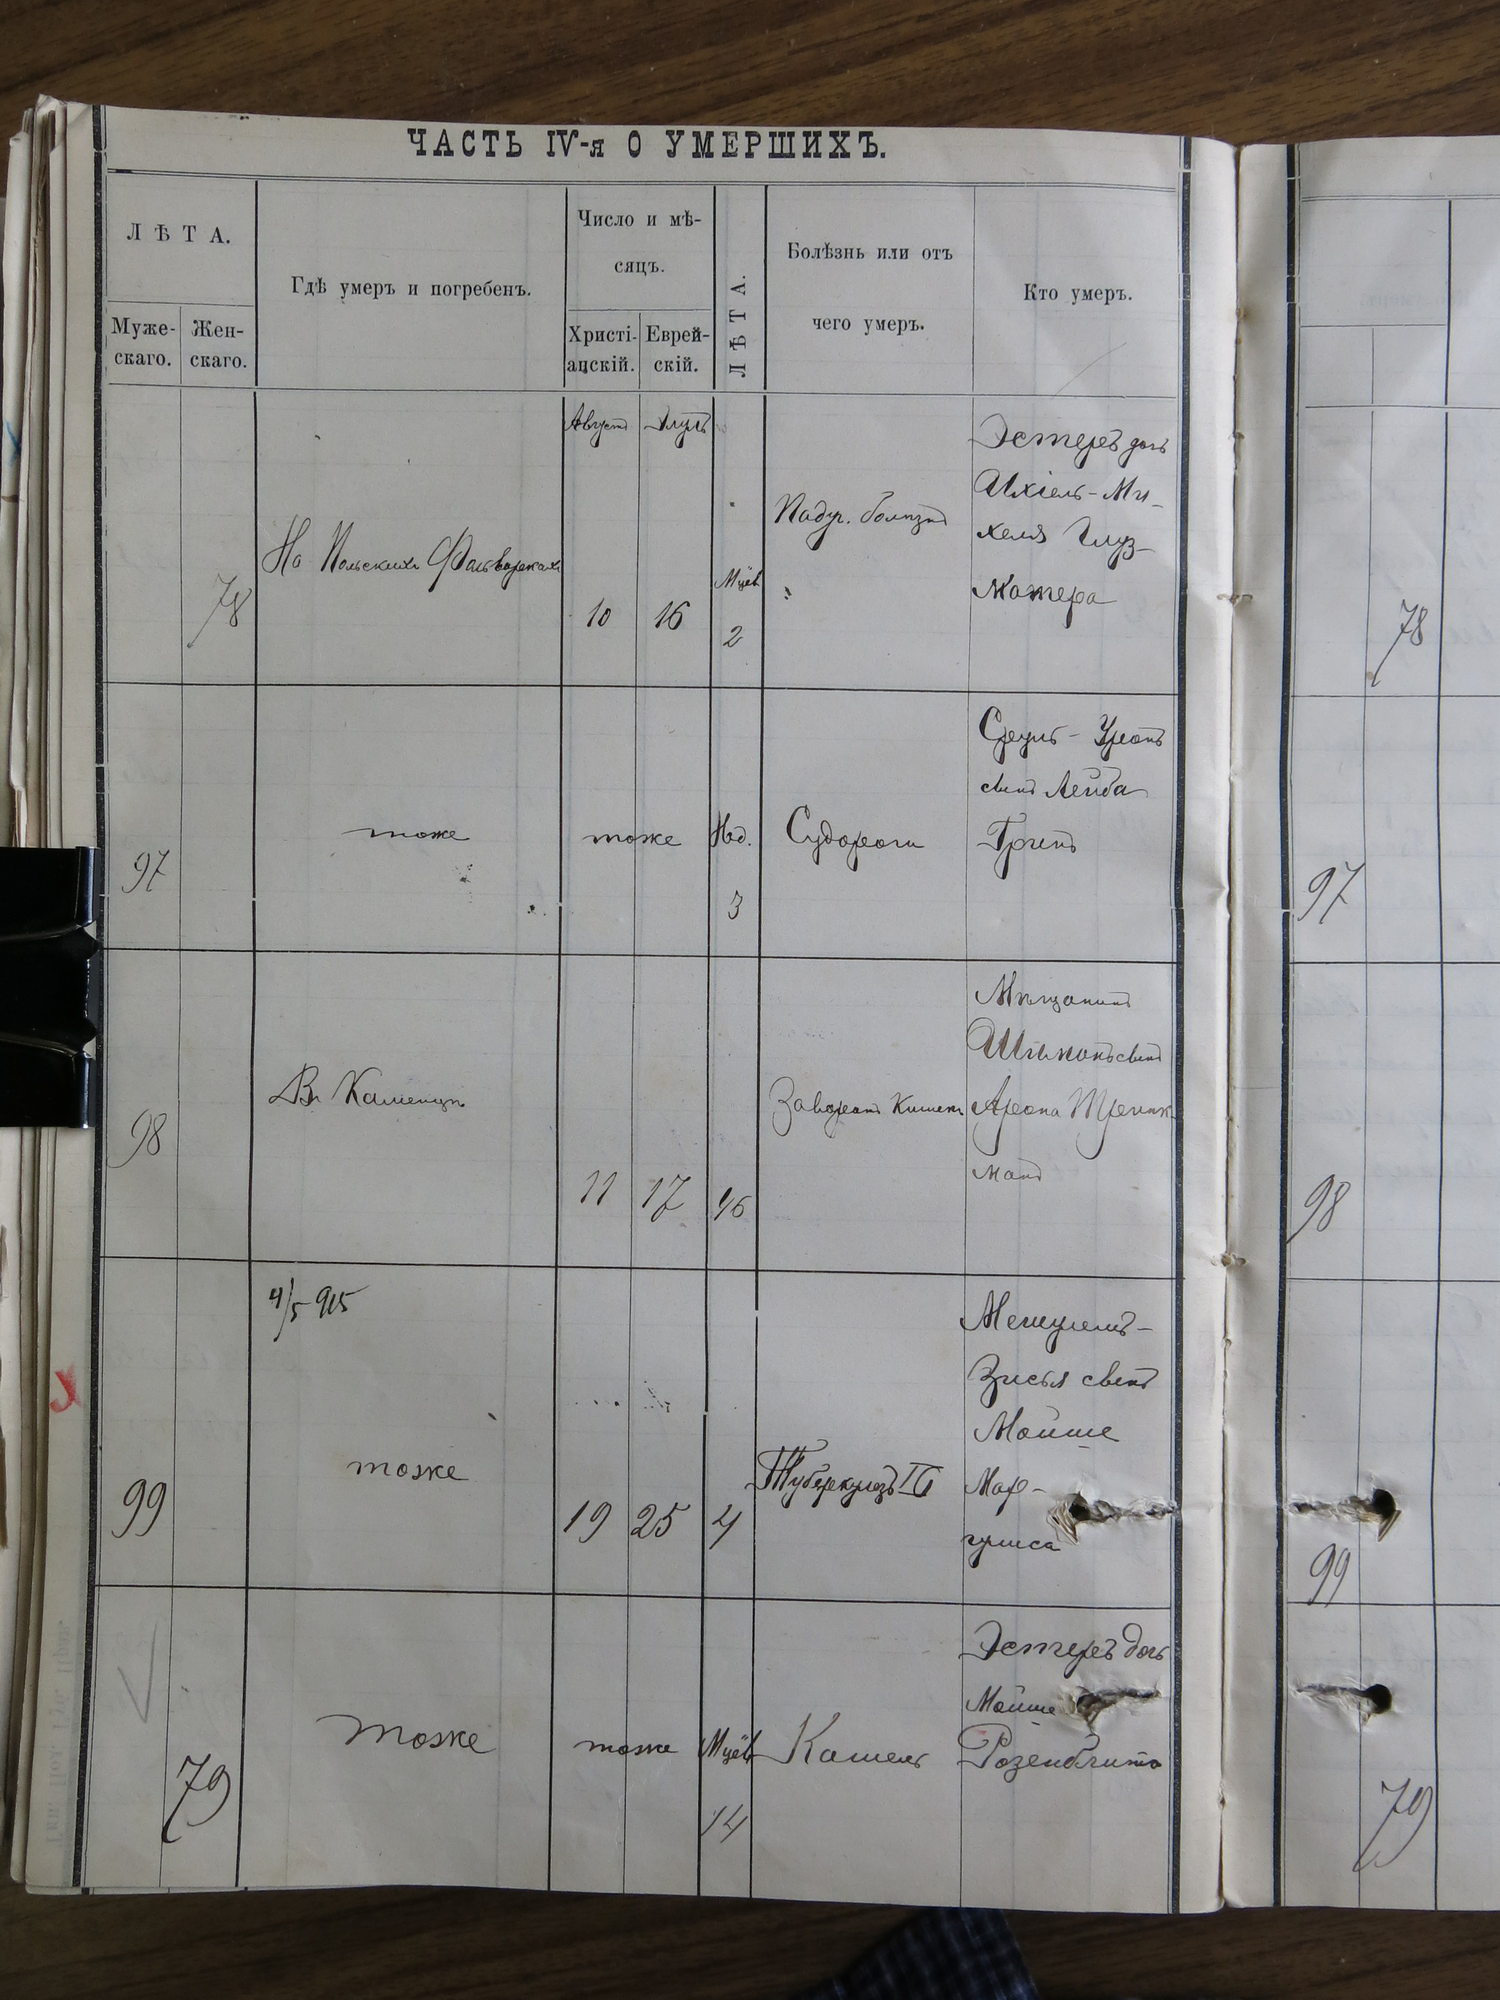 ЧАСТЬ IV-я О УМЕРШИХЪ.
ЛѢТА.
Муже-
скаго.
Жен-
скаго.
Гдѣ умеръ и погребенъ.
Число и мѣ-
сяцъ.
Христі-
анскій.
Еврей-
скій.
ЛѢТА.
Болѣзнь или отъ
чего умеръ.
Кто умеръ.
78
На Польскихъ Фольваркахъ
Августъ
10
Элулъ
16
Мцев
2
Эстеръ дочь
Ихіель-Ми-
хеля Глуз-
мотера
78
97
тоже
тоже
Нед.
3
Судороги
Сруль-
Лейба
Гринъ
97
98
Въ Каменцѣ
11
17
46
Заворотъ Кишекъ
Мѣщанинъ
Шимонъ
Арона
манъ
98
4/5 915
99
тоже
19
25
4
Туберкулезъ
Мешулемъ-
Зисья
Мойше
Мар-
гулиса
99
79
тоже
тоже
Мцев
14
Кашель
Эстеръ дочь
Мойше
Розенблита
79